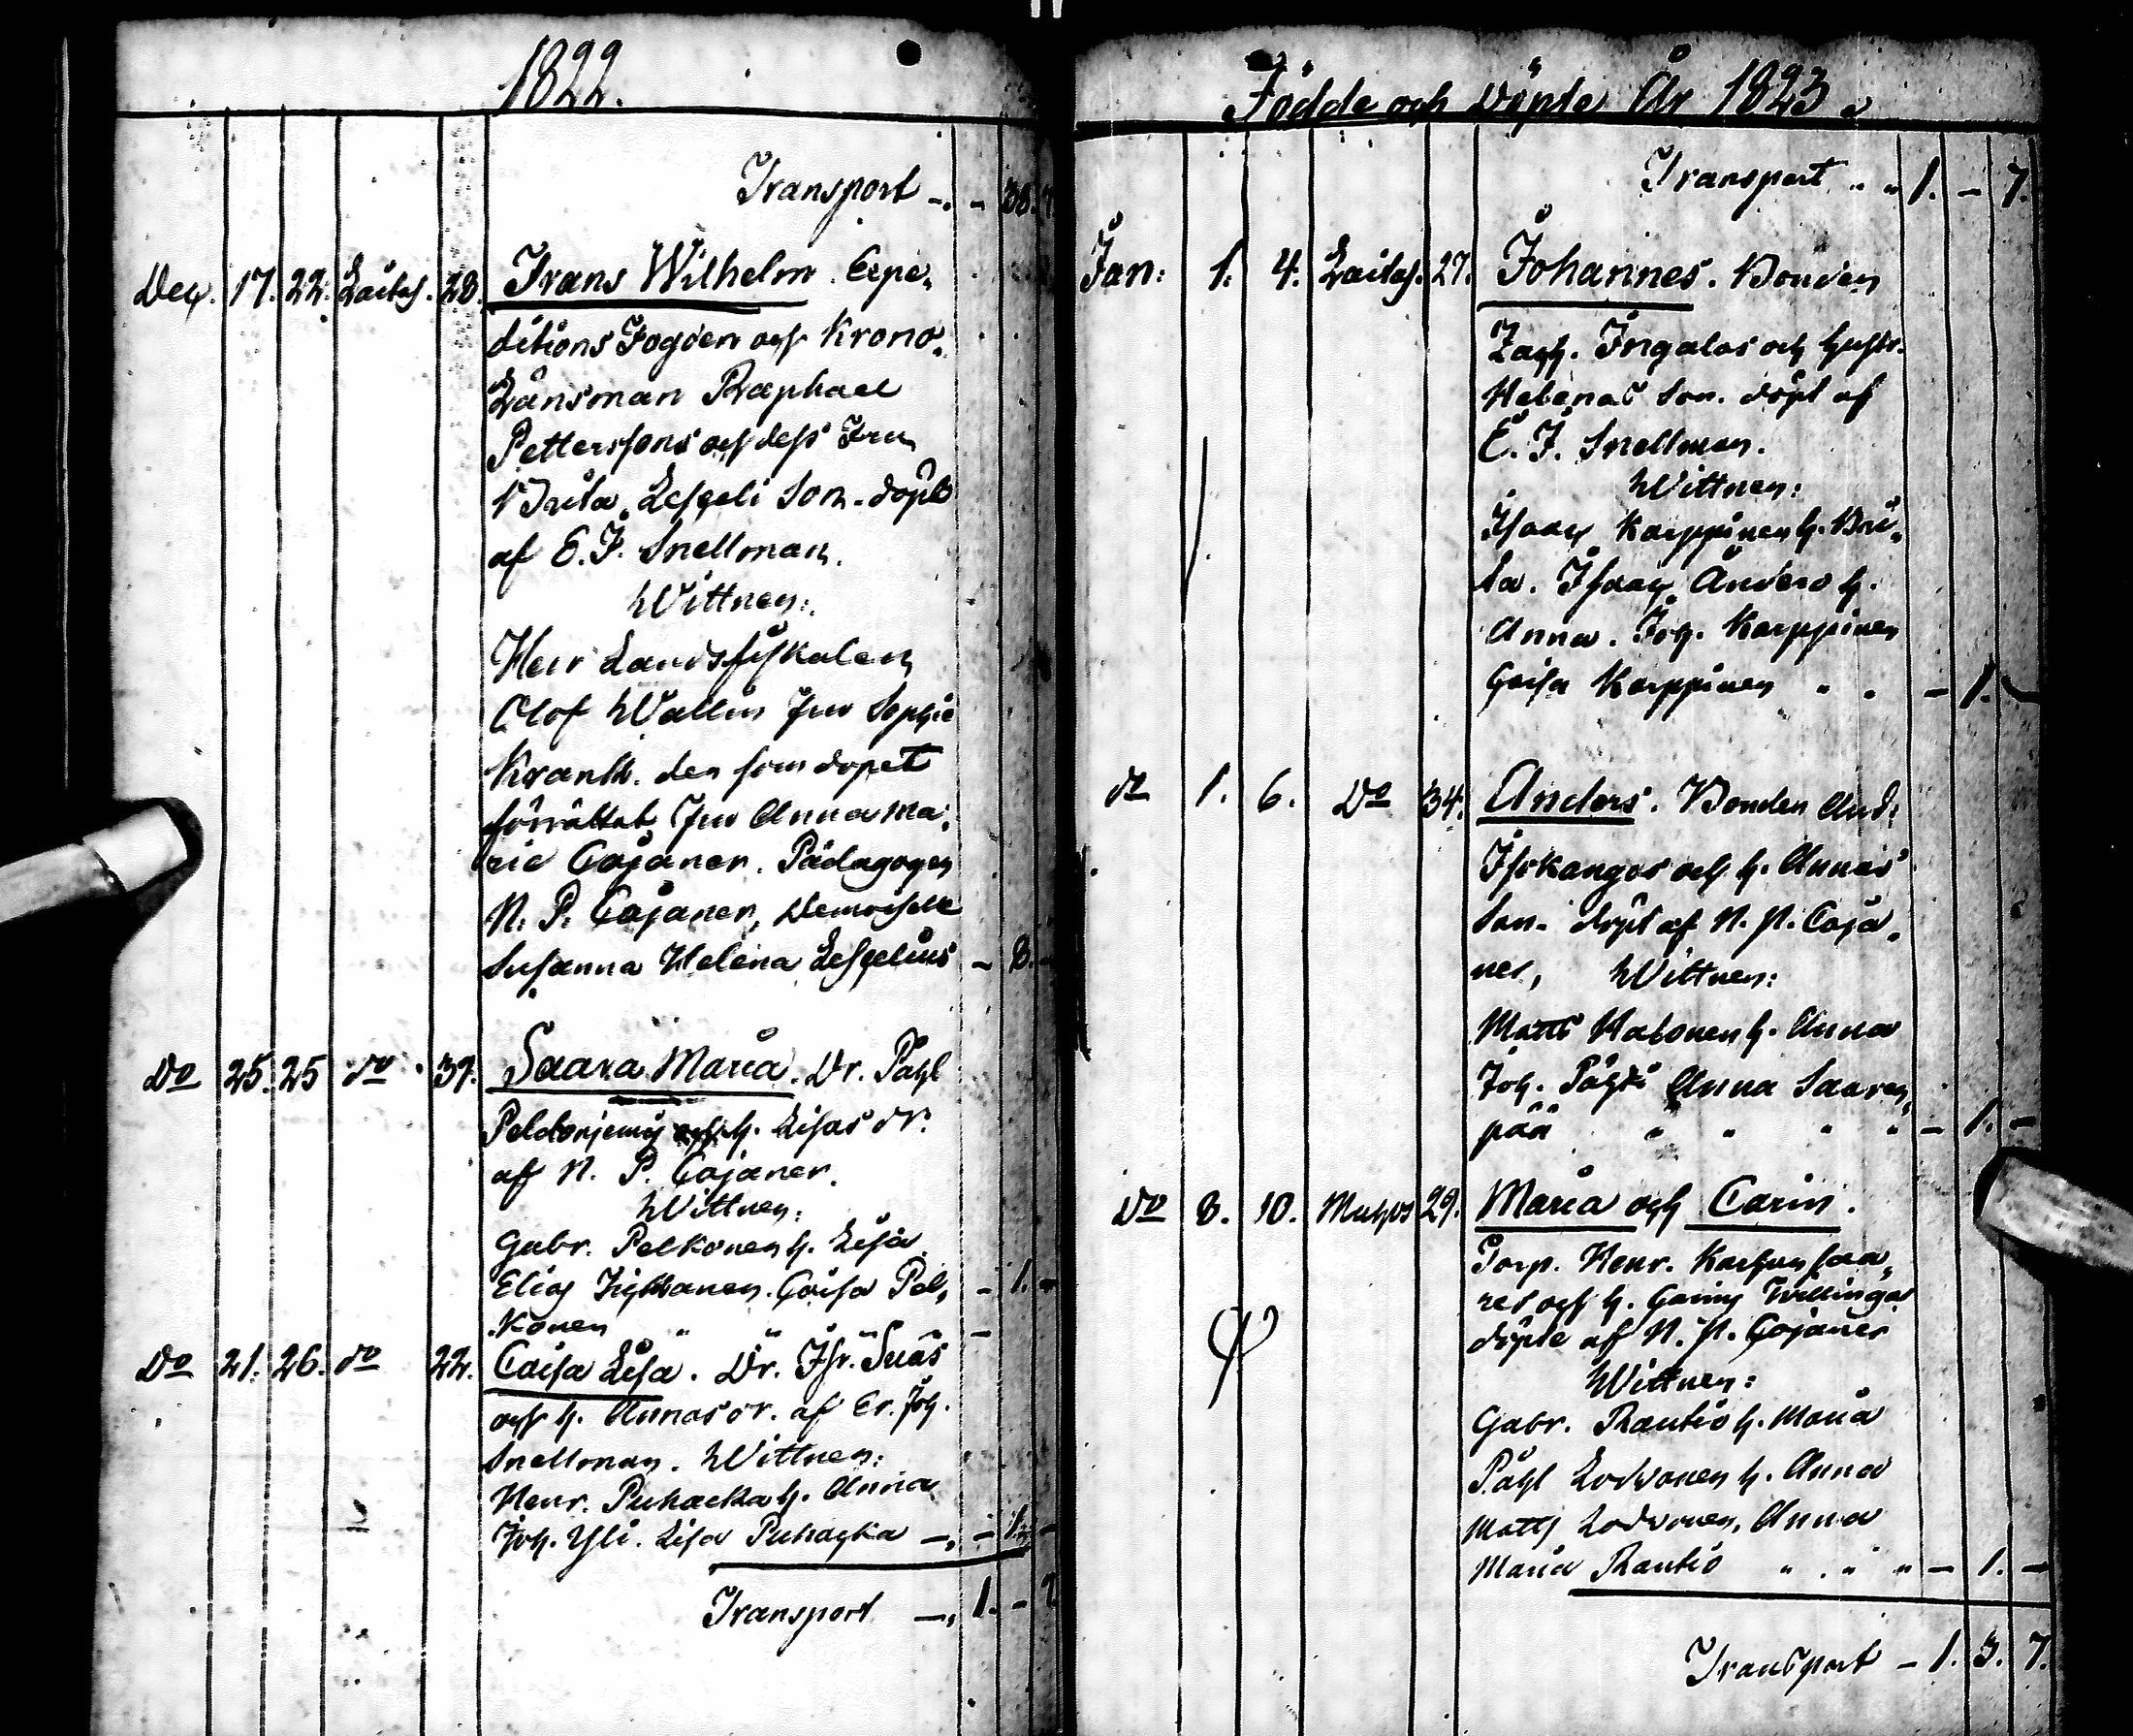 1822.
Transport -. - 38. 7
Dec. 17. 22. Laitas. 28. Frans Wilhelm. Expe-
ditions Fogden och Krono-
Länsman Raphael
Petterssons och dess Fru
Brita Lesceli Son. döpt
af E. J. Snellman.
Wittnen:
Herr Landsfiskalen
Olof Wallin Fru Sophie
Krank. den som dopet
förrättat Fru Anna Ma-
ria Cajaner. Pädagogen
N. P. Cajaner, Demoiselle
Susanna Helena Lescelius - 8. -
Do 25. 25 do 37. Saara Maria. Dr. Påhl
Peldonjemi och h. Lisas dr.
af N. P. Cajaner.
Wittnen:
Gabr. Pelkonen h. Lisa
Elias Tihkanen. Caisa Pel- - 1. -
konen " " -
Do 21. 26. do 22. Caisa Lisa. Dr. Isr. Suas
och h. Annas dr. af Er. Joh.
Snellman. Wittnen:
Henr. Puhacka h. Anna
Joh. Yli. Lisa Puhacka -, - 1. -
Transport -, 1. - 7
Födde och döpte År 1823.
Transport " " 1. - 7.
Jan: 1. 4. Laitas. 27. Johannes. Bonden
Zach. Ingalas och hustr.
Helenas Son. döpt af
E. J. Snellman.
Wittnen:
Isaac Karppinen h. Bri-
ta. Isaac Andero h.
Anna. Joh. Karppinen
Caisa Karppinen " " - 1. -
do 1. 6. Do 34. Anders. Bonden And:
Isokangas och h. Annas
Son. döpt af N. P. Caja-
ner, Wittnen:
Matts Halonen h. Anna
Joh. Pähti Anna Saaren-
pää " " " " - 1. -
Do 8. 10. Muhos 29. Maria och Carin.
Torp. Henr. Karhunsaa-
res och h. Carins Twillingar
döpte af N. P. Cajaner
Wittnen:
Gabr. Rautio h. Maria
Påhl Lodvonen h. Anna
Matts Lodvonen, Anna
Maria Rautio " " " - 1. -
Transport - 1. 3. 7.